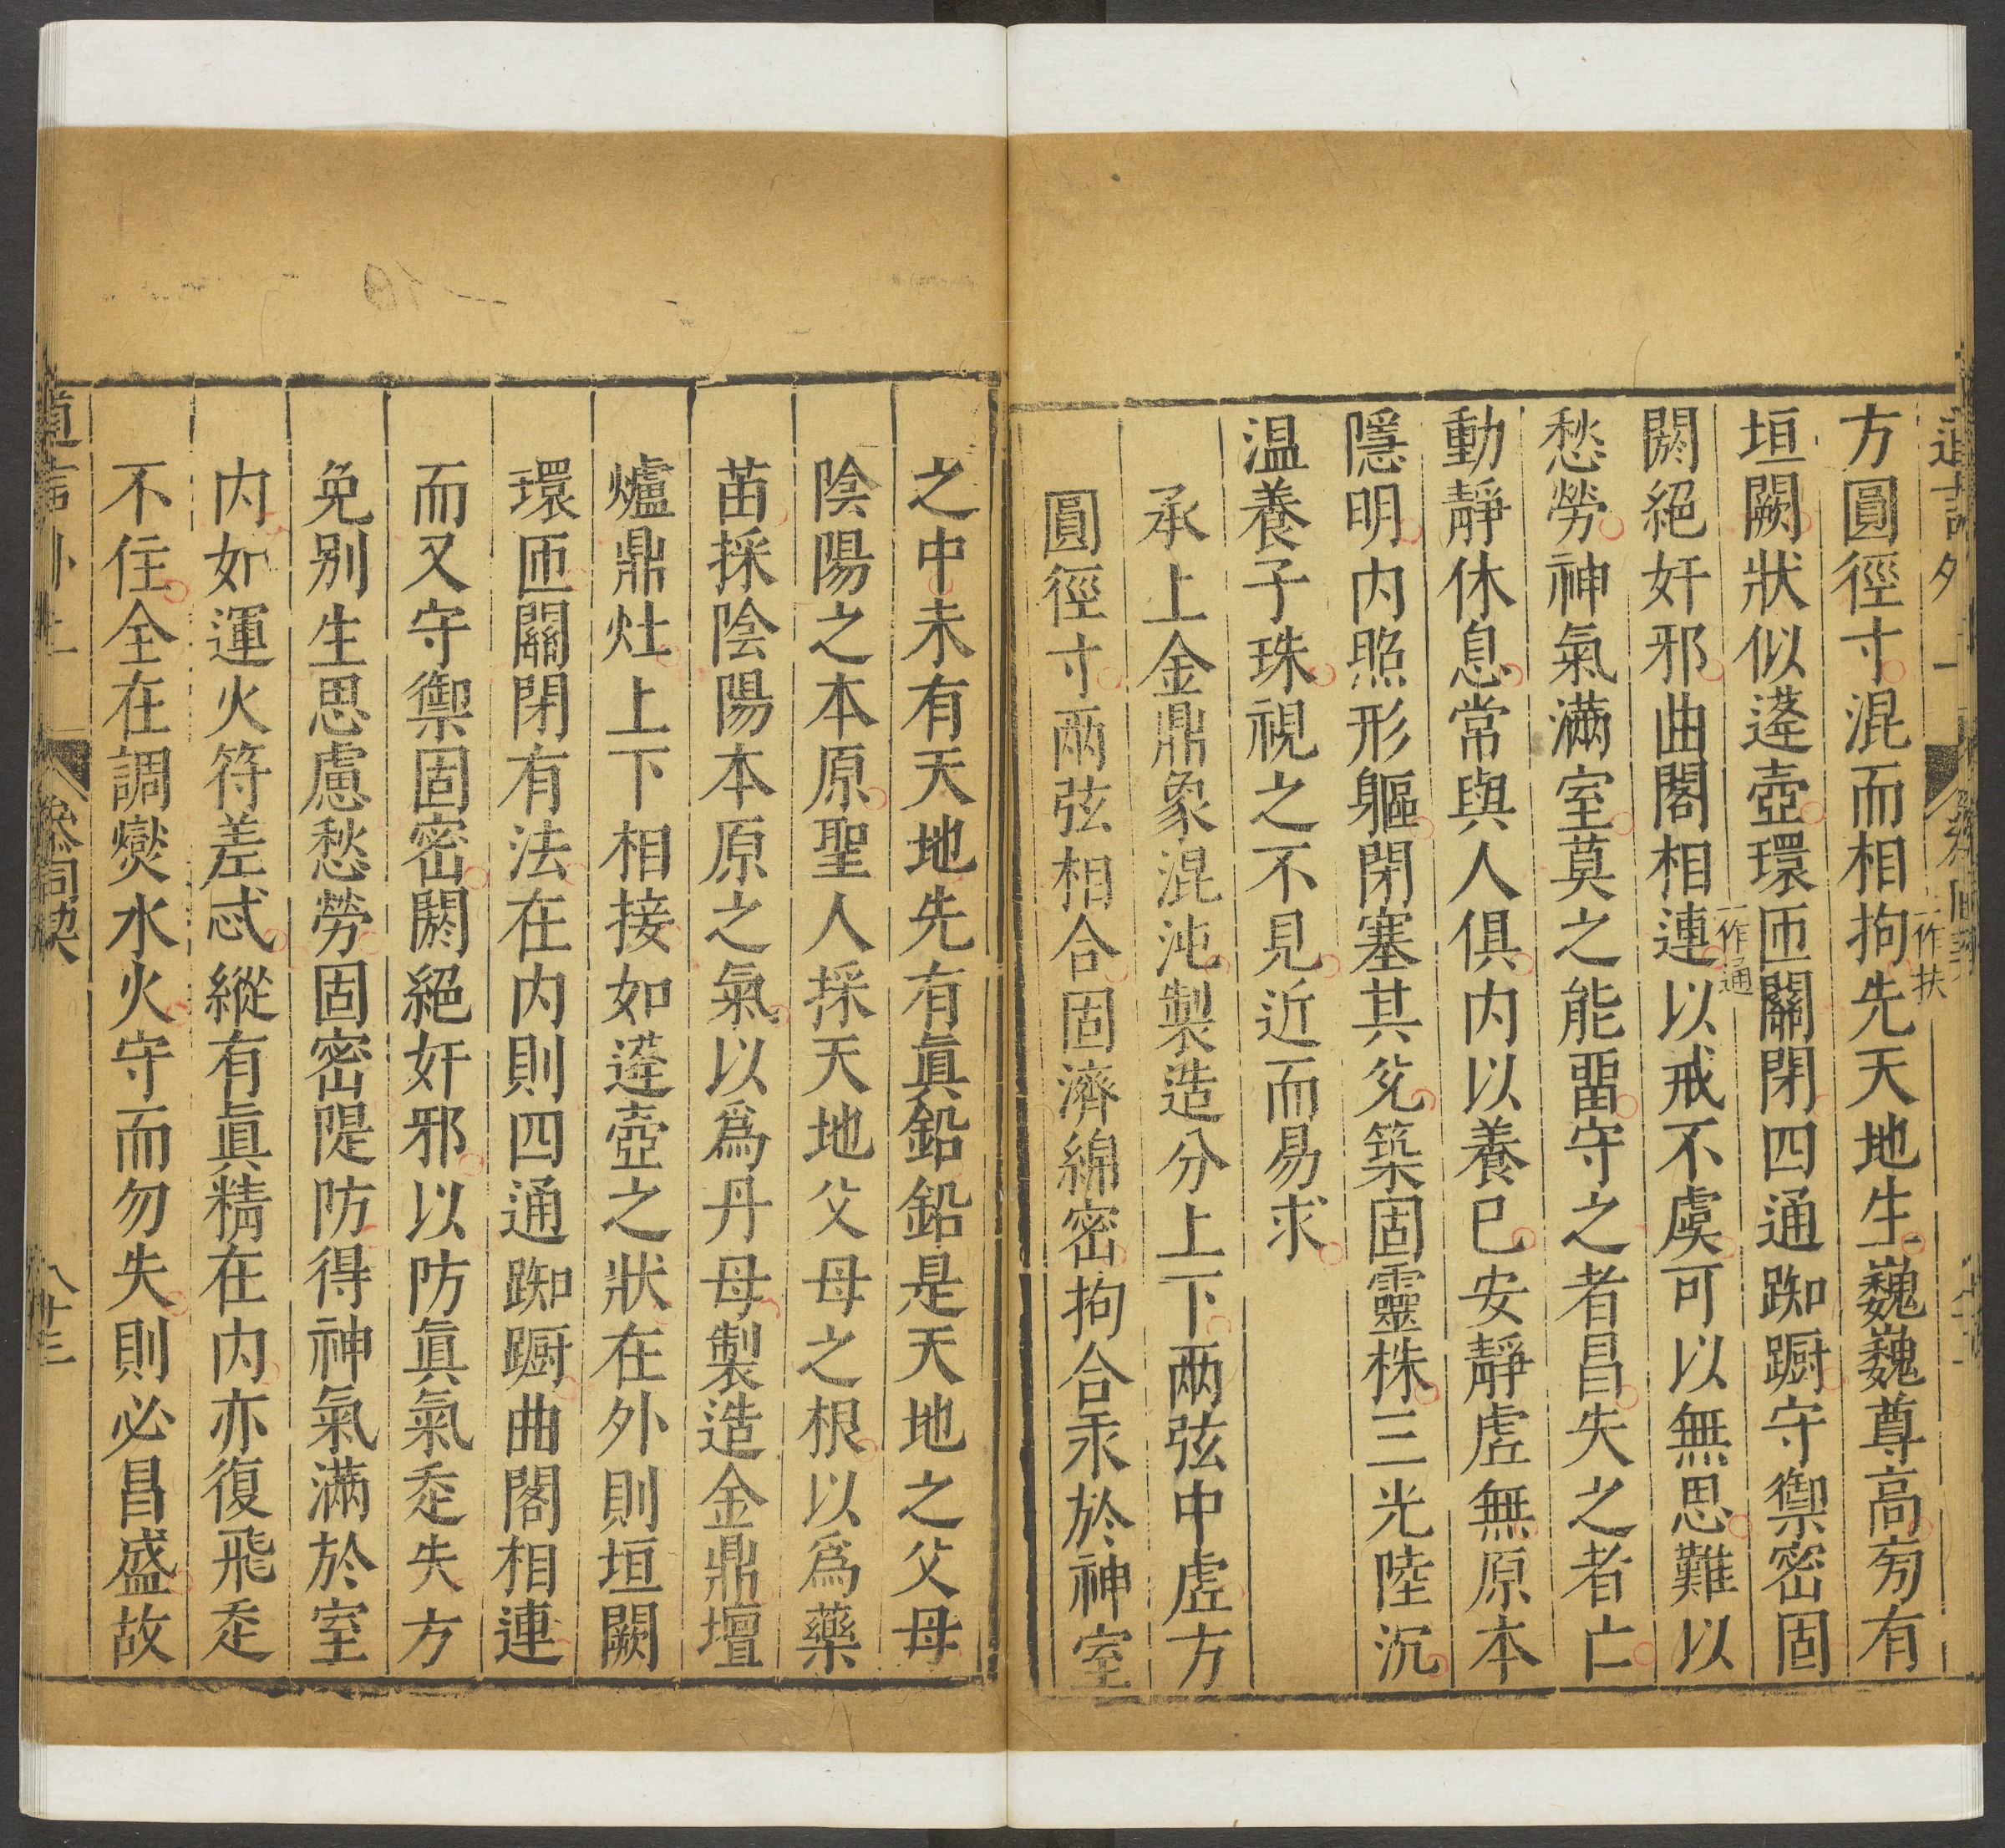 道言外
方圓徑寸混而相拘先天地生巍巍尊高旁有
一作扶
垣闕狀似蓬壺環匝關閉四通踟躕守禦密固
一作通
閼絕奸邪曲閣相連以戒不虞可以無思難以
愁勞神氣滿室莫之能畱守之者昌失之者亡
動靜休息常與人俱内以養已安靜虛無原本
隱明内照形軀閉塞其兊築固靈株三光陸沉
温養子珠視之不見近而易求
承上金鼎象混沌製造分上下兩弦中虛方
圓徑寸兩弦相合固濟綿密拘合汞於神室
之中未有天地先有眞鉛鉛是天地之父母
陰陽之本原聖人採天地父母之根以爲藥
苗採陰陽本原之氣以爲丹母製造金鼎壇
爐鼎灶上下相接如蓬壺之狀在外則垣闕
環匝關閉有法在内則四通踟躕曲閣相連
而又守禦固密閼絕奸邪以防眞氣走失方
免别生思慮愁勞固密隄防得神氣滿於室
内如運火符差忒縱有眞精在内亦復飛走
不住全在調燮水火守而勿失則必昌盛故
道言外
參同契
八十三